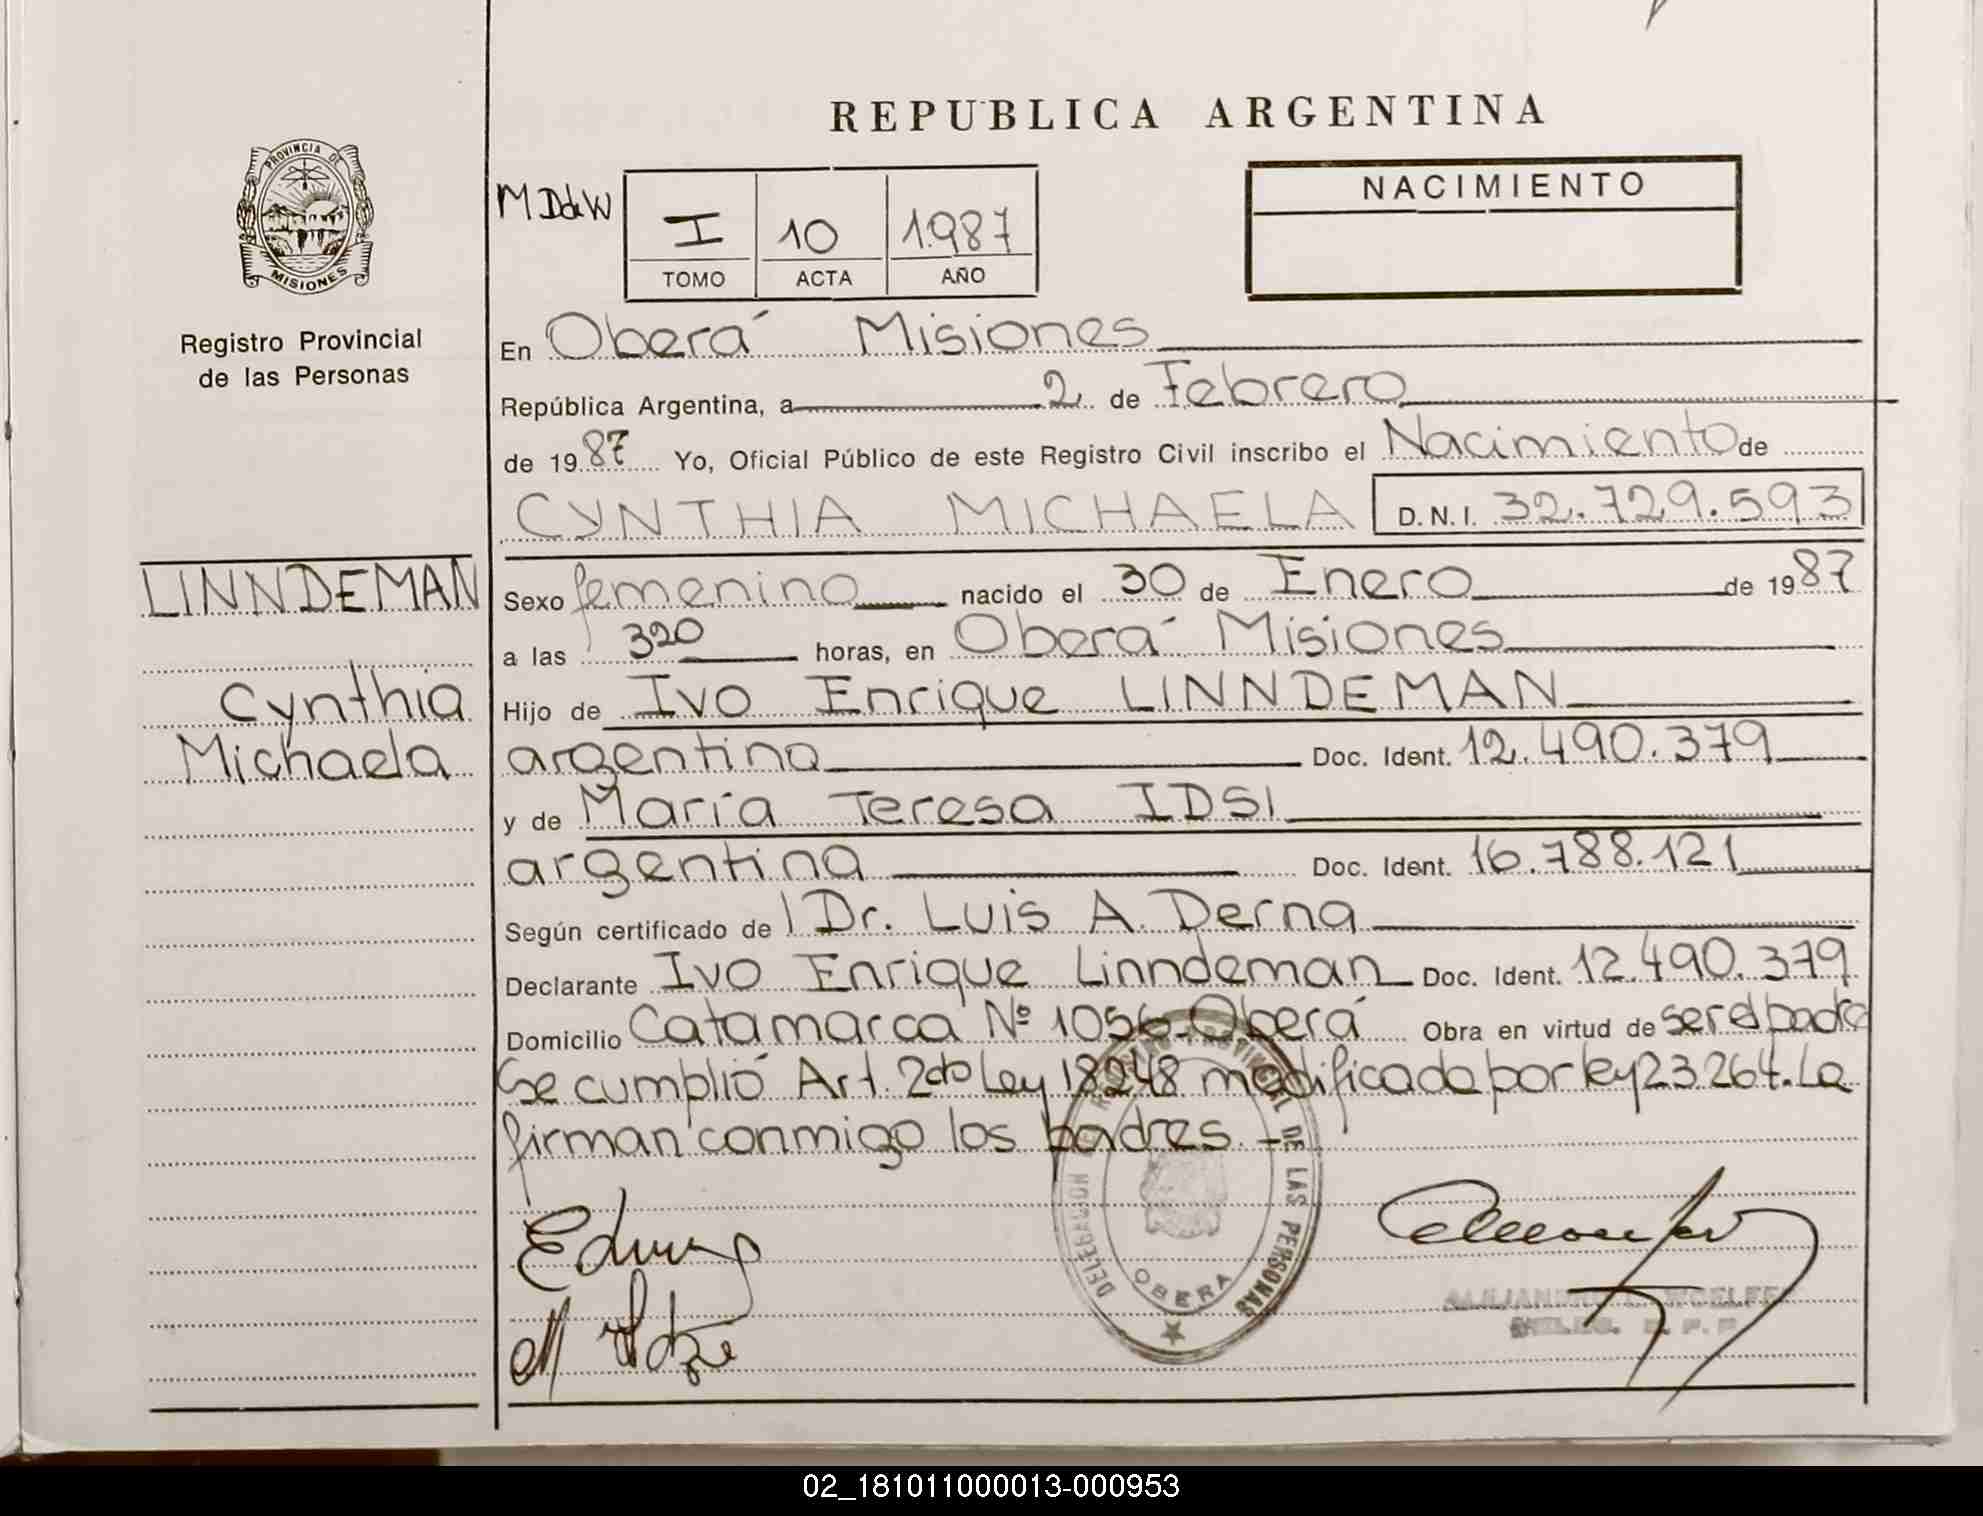 REPUBLICA ARGENTINA
PROVINCIA DE
MISIONES
Registro Provincial
de las Personas
MDdeW
I 10 1.987
TOMO ACTA AÑO
NACIMIENTO
En Oberá Misiones
República Argentina, a 2 de Febrero
de 1987 Yo, Oficial Público de este Registro Civil inscribo el Nacimiento de
CYNTHIA MICHAELA D.N.I. 32.729.593
LINNDEMAN
Cynthia
Michaela
Sexo femenino nacido el 30 de Enero de 1987
a las 320 horas, en Oberá Misiones
Hijo de Ivo Enrique LINNDEMAN
argentino Doc. Ident. 12.490.379
y de María Teresa IDSI
argentina Doc. Ident. 16.788.121
Según certificado de Dr. Luis A. Derna
Declarante Ivo Enrique Linndeman Doc. Ident. 12.490.379
Domicilio Catamarca Nº 1056-Oberá Obra en virtud de ser el padre
Se cumplió Art. 2do Ley 18248 modificada por ley 23.264. Le
firman conmigo los padres.-
DELEGACION DE REGISTRO PROVINCIAL DE LAS PERSONAS
OBERA
02_181011000013-000953